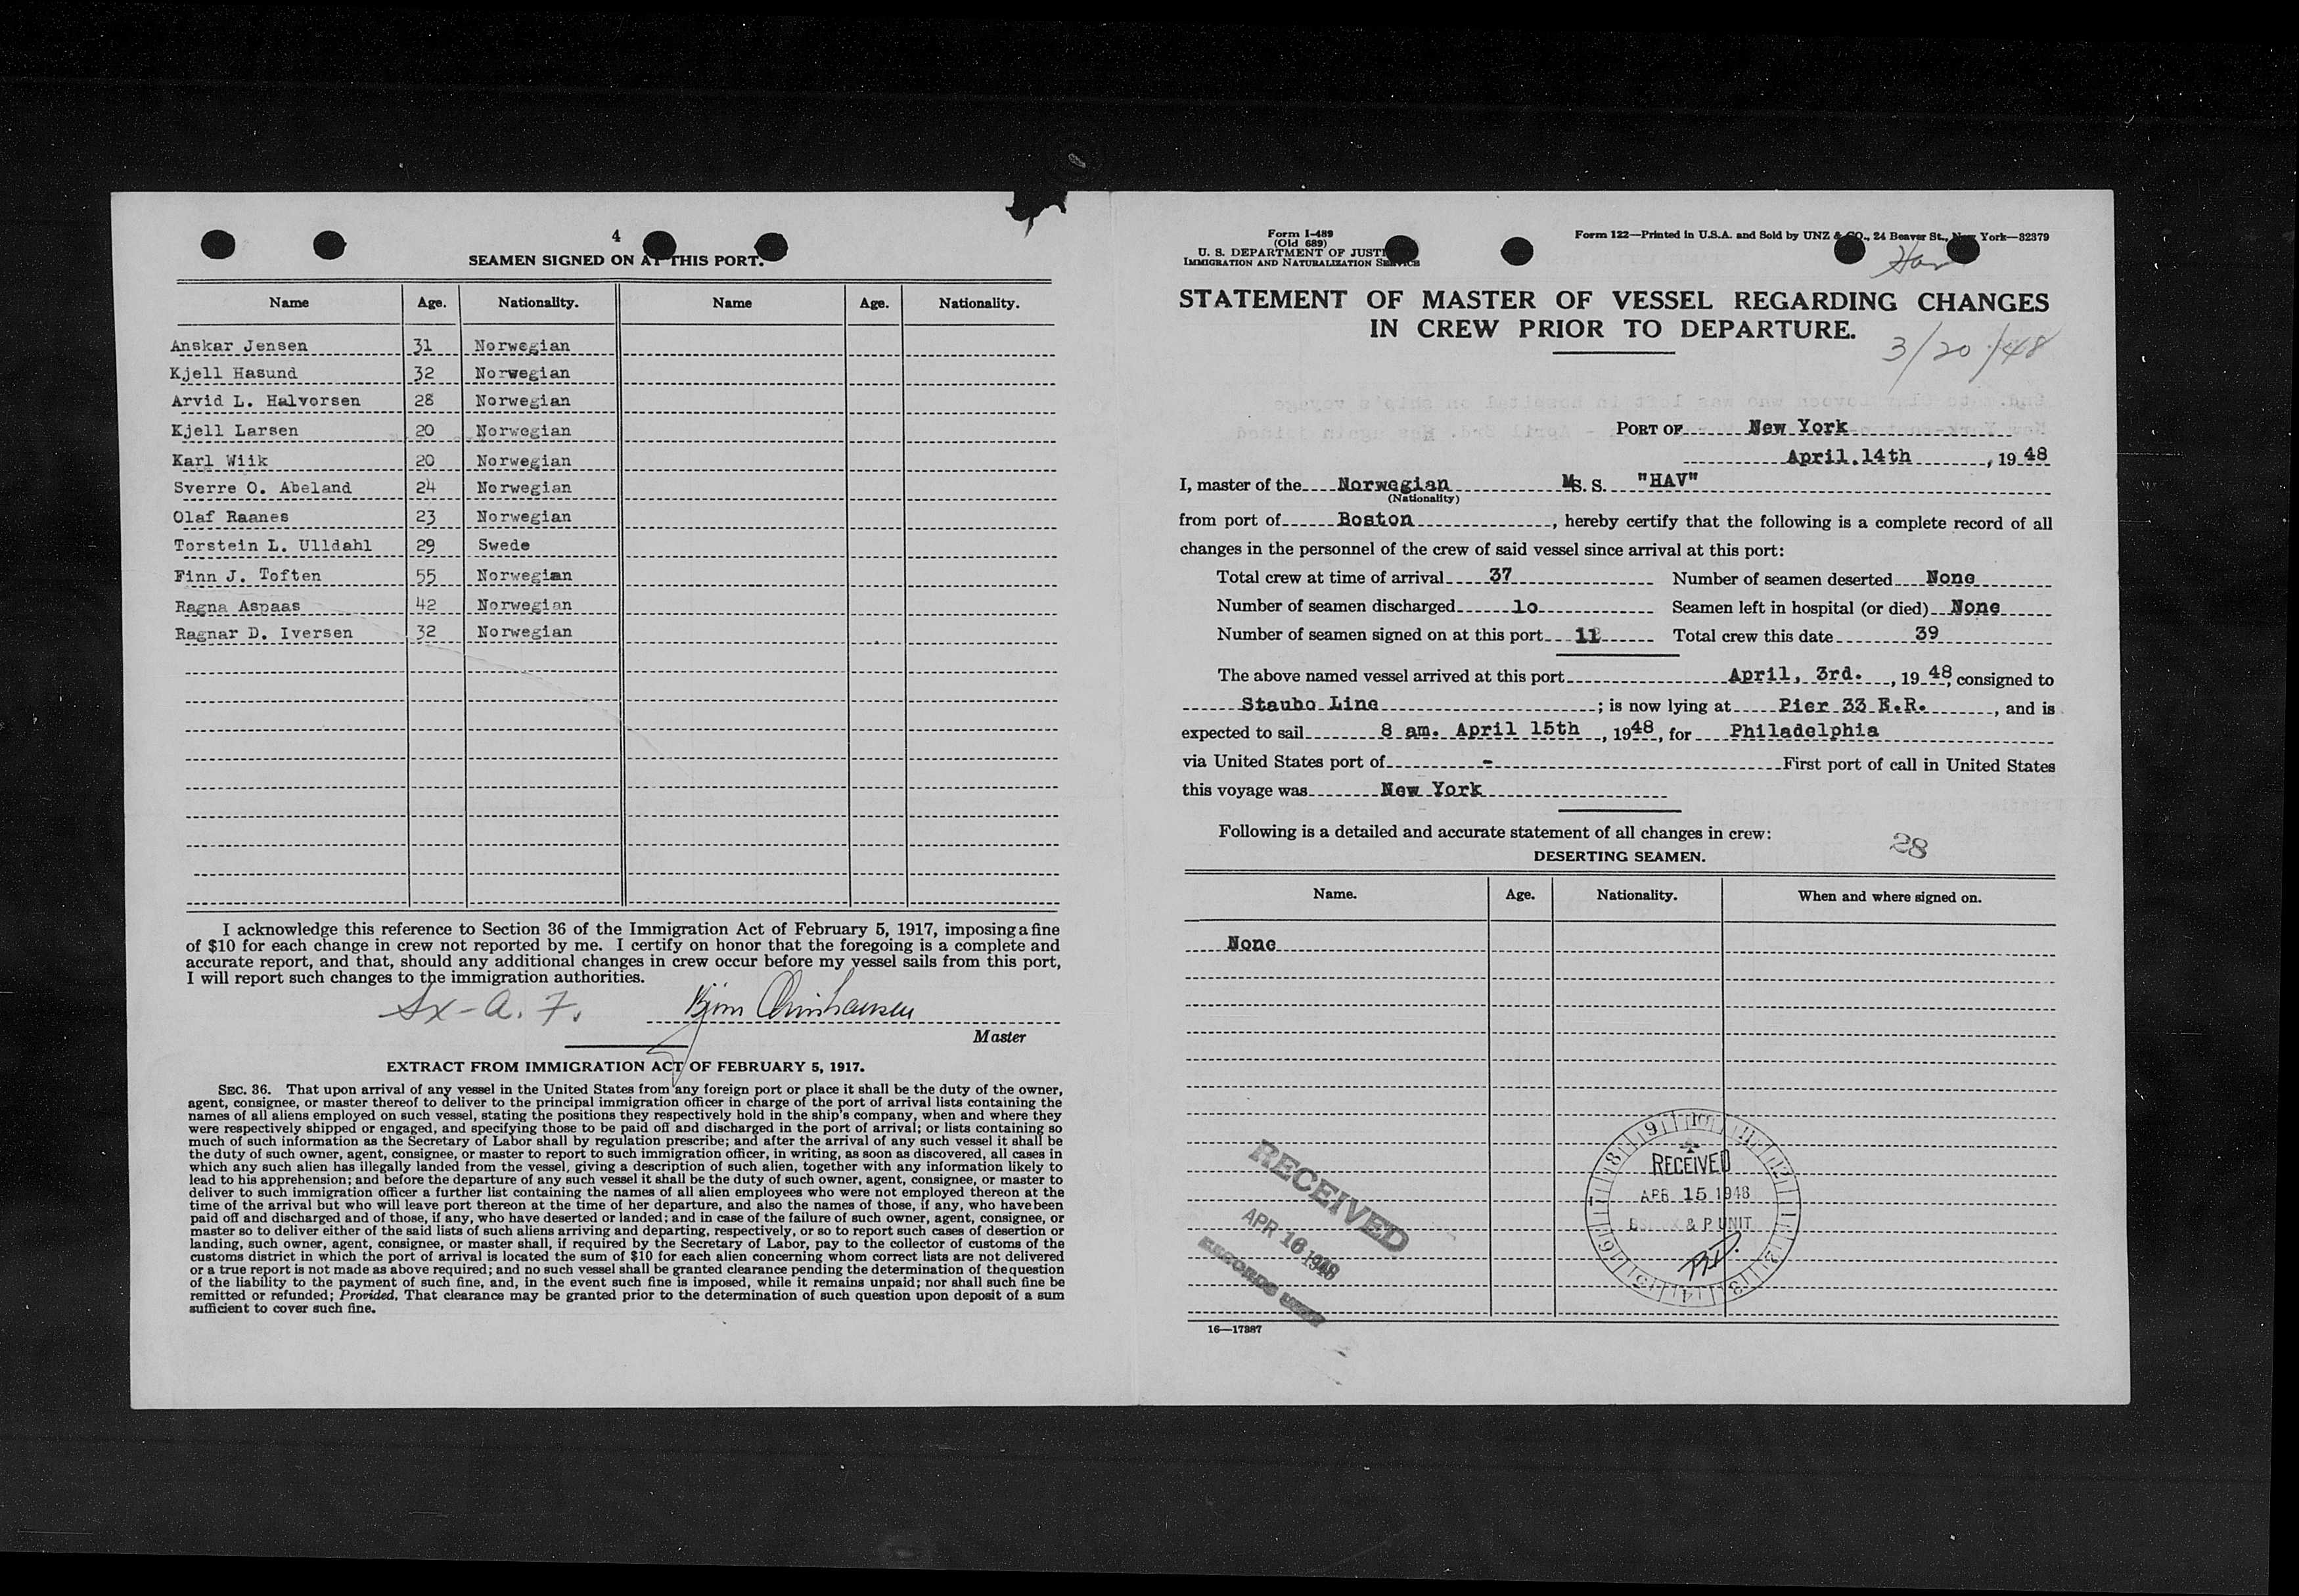 4
SEAMEN SIGNED ON AT THIS PORT.
Name Age. Nationality. Name Age. Nationality.
Anskar Jensen 31 Norwegian
Kjell Hasund 32 Norwegian
Arvid L. Halvorsen 28 Norwegian
Kjell Larsen 20 Norwegian
Karl Wiik 20 Norwegian
Sverre O. Abeland 24 Norwegian
Olaf Raanes 23 Norwegian
Torstein L. Ulldahl 29 Swede
Finn J. Toften 55 Norwegian
Ragna Aspaas 42 Norwegian
Ragnar D. Iversen 32 Norwegian
I acknowledge this reference to Section 36 of the Immigration Act of February 5, 1917, imposing a fine
of $10 for each change in crew not reported by me. I certify on honor that the foregoing is a complete and
accurate report, and that, should any additional changes in crew occur before my vessel sails from this port,
I will report such changes to the immigration authorities.
Sx-a. 7.
Master
EXTRACT FROM IMMIGRATION ACT OF FEBRUARY 5, 1917.
SEC. 36. That upon arrival of any vessel in the United States from any foreign port or place it shall be the duty of the owner,
agent, consignee, or master thereof to deliver to the principal immigration officer in charge of the port of arrival lists containing the
names of all aliens employed on such vessel, stating the positions they respectively hold in the ship's company, when and where they
were respectively shipped or engaged, and specifying those to be paid off and discharged in the port of arrival; or lists containing so
much of such information as the Secretary of Labor shall by regulation prescribe; and after the arrival of any such vessel it shall be
the duty of such owner, agent, consignee, or master to report to such immigration officer, in writing, as soon as discovered, all cases in
which any such alien has illegally landed from the vessel, giving a description of such alien, together with any information likely to
lead to his apprehension; and before the departure of any such vessel it shall be the duty of such owner, agent, consignee, or master to
deliver to such immigration officer a further list containing the names of all alien employees who were not employed thereon at the
time of the arrival but who will leave port thereon at the time of her departure, and also the names of those, if any, who have been
paid off and discharged and of those, if any, who have deserted or landed; and in case of the failure of such owner, agent, consignee, or
master so to deliver either of the said lists of such aliens arriving and departing, respectively, or so to report such cases of desertion or
landing, such owner, agent, consignee, or master shall, if required by the Secretary of Labor, pay to the collector of customs of the
customs district in which the port of arrival is located the sum of $10 for each alien concerning whom correct lists are not delivered
or a true report is not made as above required; and no such vessel shall be granted clearance pending the determination of the question
of the liability to the payment of such fine, and, in the event such fine is imposed, while it remains unpaid; nor shall such fine be
remitted or refunded; Provided, That clearance may be granted prior to the determination of such question upon deposit of a sum
sufficient to cover such fine.
Form I-489
(Old 689)
U. S. DEPARTMENT OF JUSTICE
IMMIGRATION AND NATURALIZATION SERVICE
Form 122—Printed in U.S.A. and Sold by UNZ & CO., 24 Beaver St., New York—32379
Hav
STATEMENT OF MASTER OF VESSEL REGARDING CHANGES
IN CREW PRIOR TO DEPARTURE.
3/20/48
PORT OF New York
April.14th, 19 48
I, master of the Norwegian M S. S. "HAV"
(Nationality)
from port of Boston, hereby certify that the following is a complete record of all
changes in the personnel of the crew of said vessel since arrival at this port:
Total crew at time of arrival 37 Number of seamen deserted None
Number of seamen discharged 1o Seamen left in hospital (or died) None
Number of seamen signed on at this port 11 Total crew this date 39
The above named vessel arrived at this port April, 3rd., 19 48, consigned to
Staubo Line; is now lying at Pier 33 E.R., and is
expected to sail 8 am. April 15th, 1948, for Philadelphia
via United States port of - First port of call in United States
this voyage was New York
Following is a detailed and accurate statement of all changes in crew:
28
DESERTING SEAMEN.
Name. Age. Nationality. When and where signed on.
None
RECEIVED
APR 16 1948
RECORDS UNIT
RECEIVED
APR 15 1948
& P UNIT
16—17387